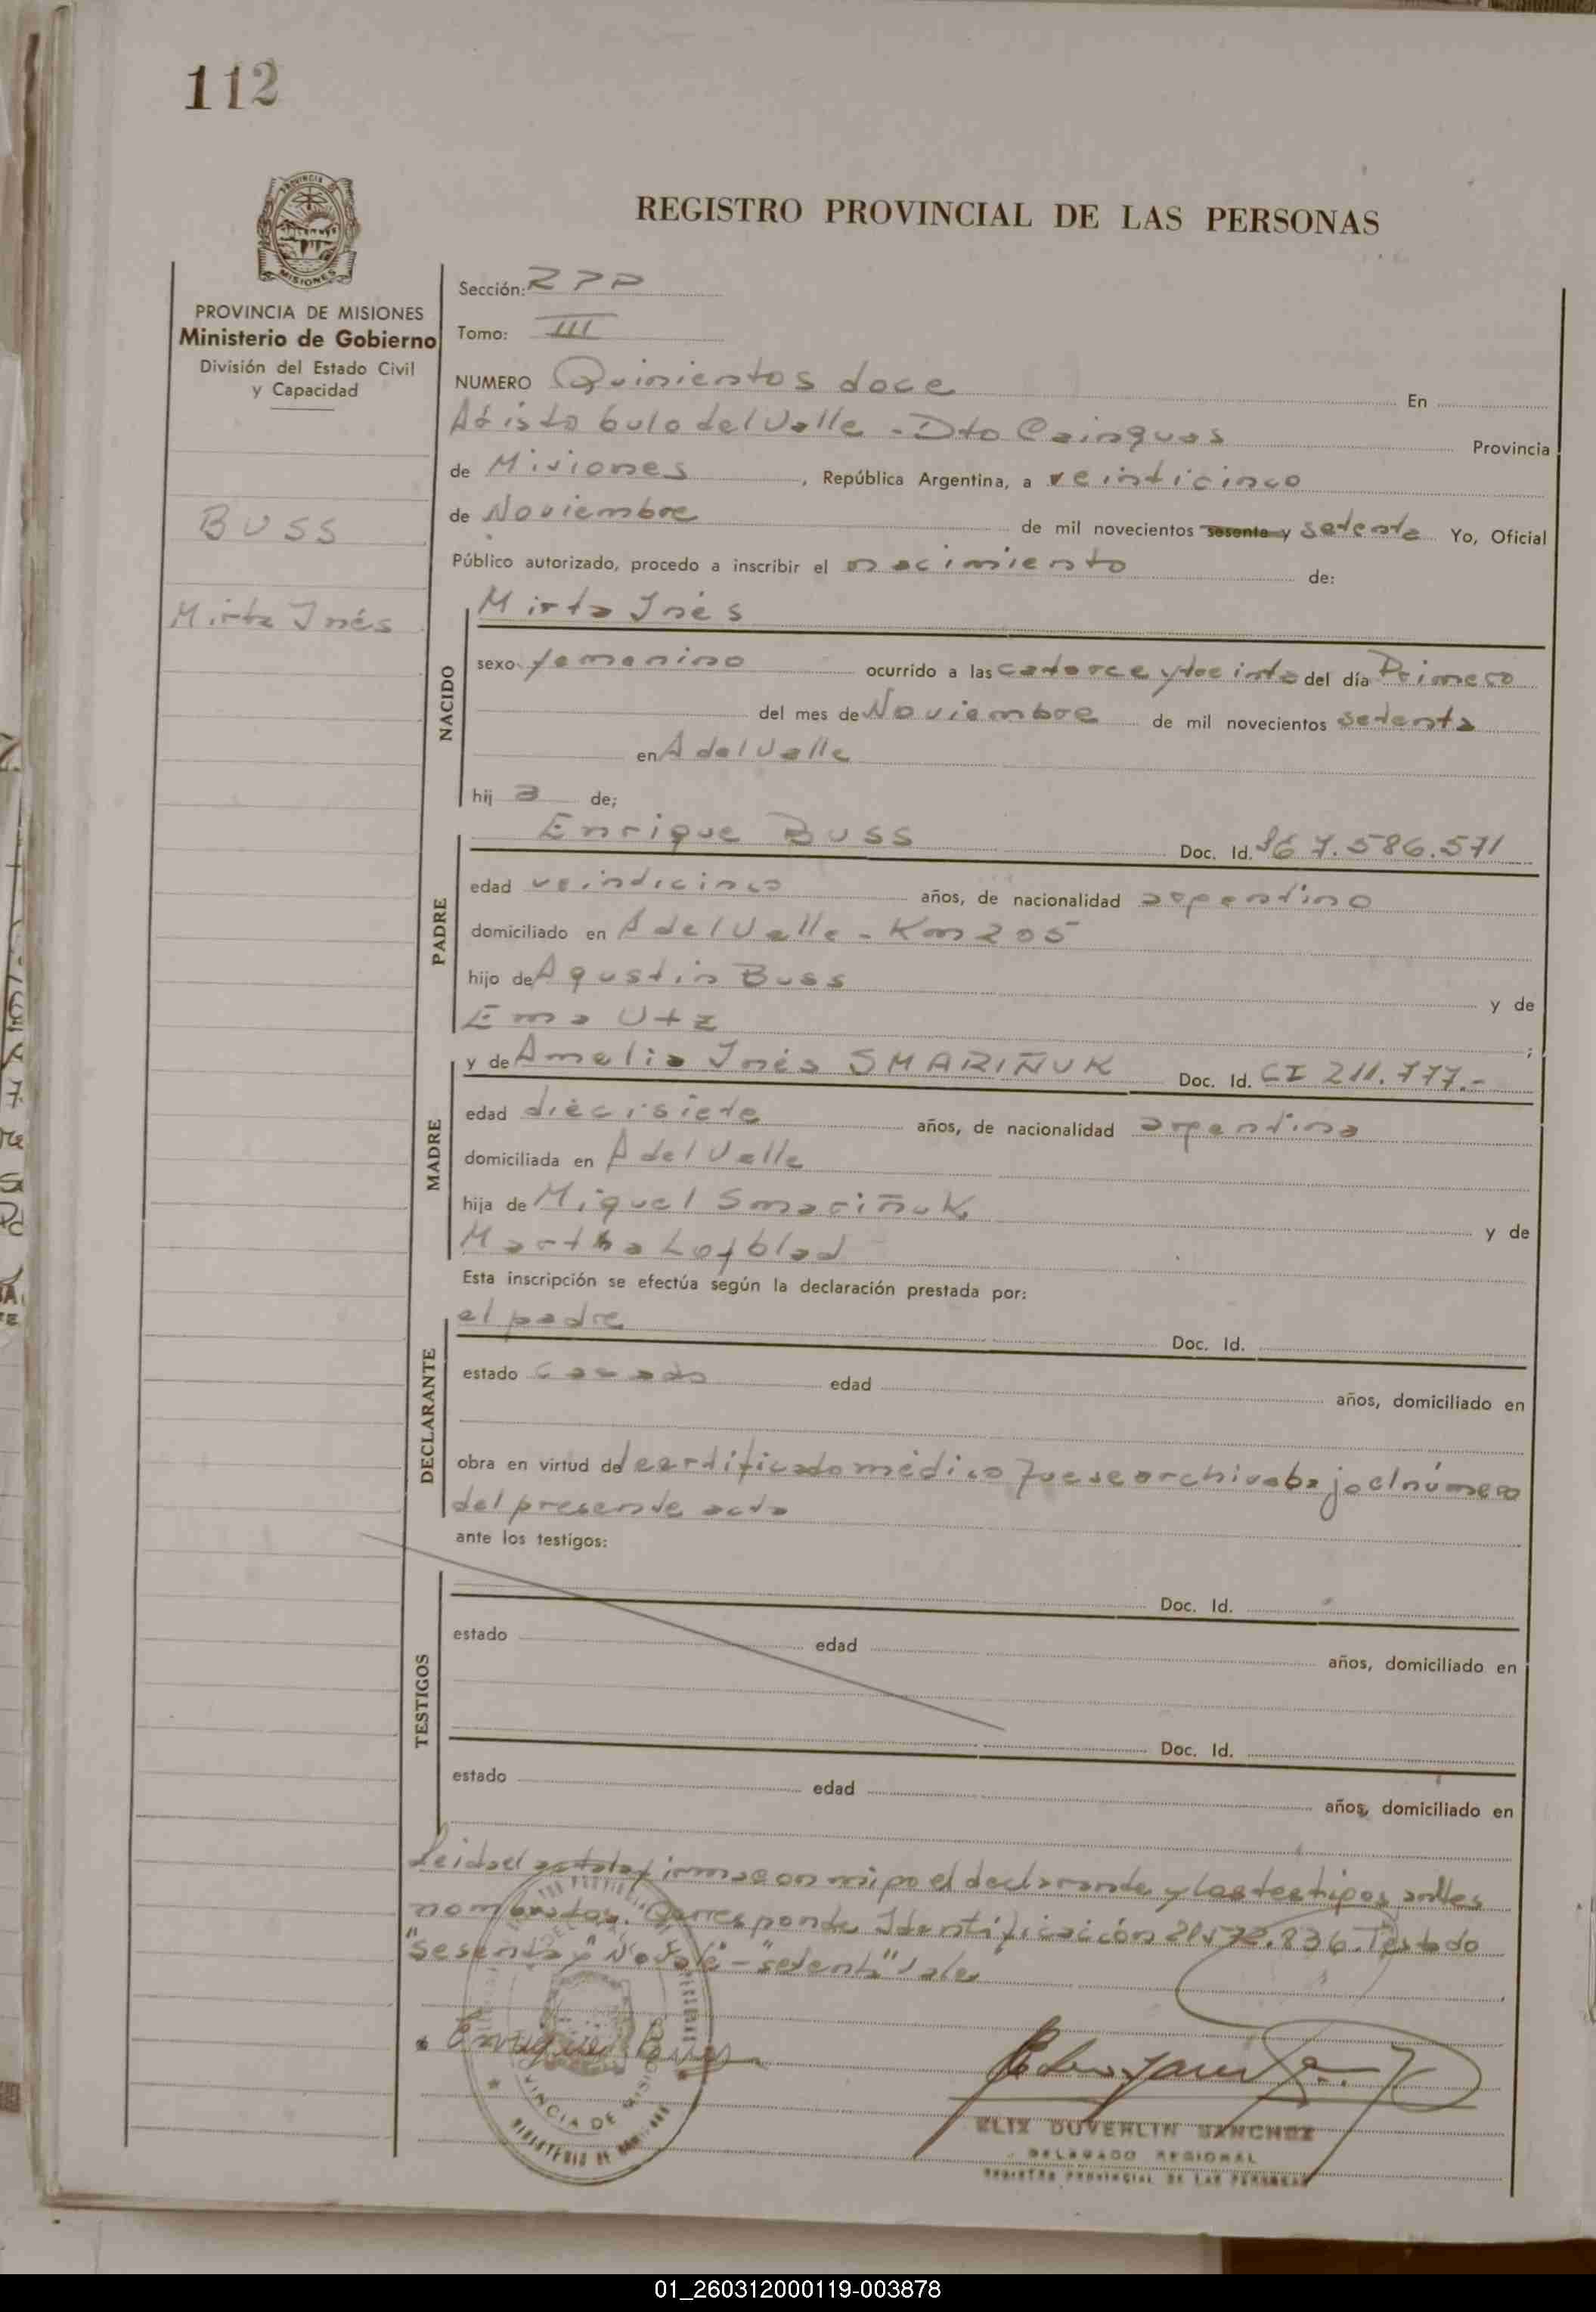 112
REGISTRO PROVINCIAL DE LAS PERSONAS
PROVINCIA DE MISIONES
Ministerio de Gobierno
División del Estado Civil
y Capacidad
BUSS
Mirta Inés
Sección: RPP
Tomo: III
NUMERO Quinientos doce En
Aristobulo del Valle - Dto Cainguas Provincia
de Misiones, República Argentina, a veinticinco
de Noviembre de mil novecientos sesenta y setenta Yo, Oficial
Público autorizado, procedo a inscribir el nacimiento de:
NACIDO
Mirta Inés
sexo femenino ocurrido a las catorce y treinta del día Primero
del mes de Noviembre de mil novecientos setenta
en A del Valle
hij a de;
PADRE
Enrique BUSS Doc. Id. 7.586.571
edad veinticinco años, de nacionalidad argentino
domiciliado en A del Valle - Km 205
hijo de Agustin Buss y de
Ema Utz ;
MADRE
y de Amelia Inés SMARIÑUK Doc. Id. CI 211.777.-
edad diecisiete años, de nacionalidad argentina
domiciliada en A del Valle
hija de Miguel Smariñuk y de
Martha Lofblad
Esta inscripción se efectúa según la declaración prestada por:
DECLARANTE
el padre Doc. Id.
estado casado edad años, domiciliado en
obra en virtud del certificado médico que se archiva bajo el número
del presente acta
ante los testigos:
TESTIGOS
Doc. Id.
estado edad años, domiciliado en
Doc. Id.
estado edad años, domiciliado en
Leida el acta la firma con migo el declarante y los testigos antes
nombrados. Corresponde Identificación 21.572.836. Testado
"sesenta y" No vale - "setenta" Vale
Enrique Buss
ELIX DUVERLIN SANCHEZ
DELEGADO REGIONAL
REGISTRO PROVINCIAL DE LAS PERSONAS
01_260312000119-003878